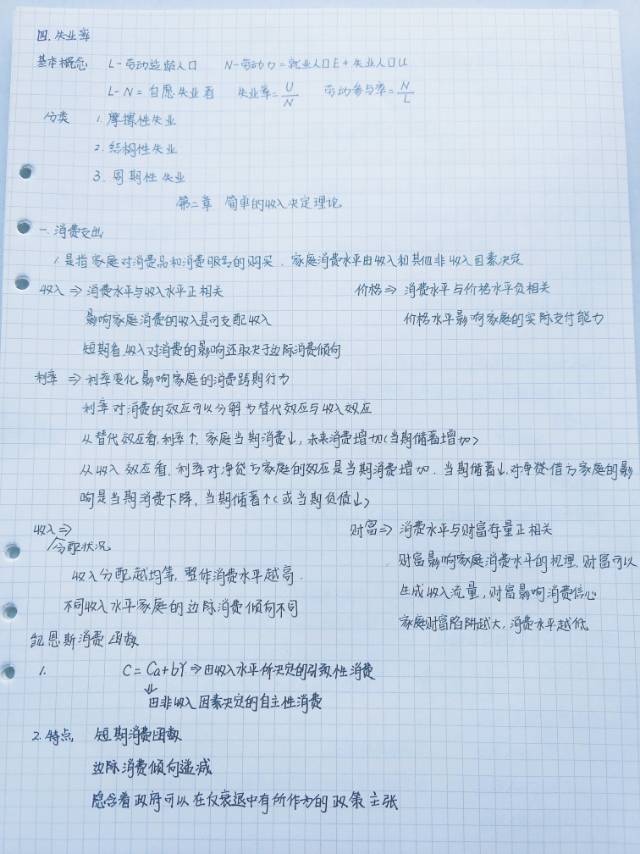 四.失业率
基本概念 L-劳动适龄人口 N-劳动力=就业人口E+失业人口U
L-N=自愿失业者 失业率=U/N 劳动参与率=N/L
分类 1.摩擦性失业
2.结构性失业
3.周期性失业
第二章 简单的收入决定理论
一.消费支出
1.是指家庭对消费品和消费服务的购买.家庭消费水平由收入和其他非收入因素决定
收入⇒消费水平与收入水平正相关 价格⇒消费水平与价格水平负相关
影响家庭消费的收入是可支配收入 价格水平影响家庭的实际支付能力
短期看,收入对消费的影响还取决于边际消费倾向
利率⇒利率变化影响家庭的消费跨期行为
利率对消费的效应可以分解为替代效应与收入效应
从替代效应看,利率↑,家庭当期消费↓,未来消费增加(当期储蓄增加)
从收入效应看,利率对净贷方家庭的效应是当期消费增加.当期储蓄↓.对净贷借方家庭的影
响是当期消费下降,当期储蓄↑(或当期负债↓)
收入⇒ 财富⇒消费水平与财富存量正相关
分配状况 财富影响家庭消费水平的机理.财富可以
收入分配越均等,整体消费水平越高 生成收入流量,财富影响消费信心
不同收入水平家庭的边际消费倾向不同 家庭财富陷阱越大,消费水平越低
凯恩斯消费函数
1. C=Ca+bY⇒由收入水平所决定的引致性消费
由非收入因素决定的自主性消费
2.特点 短期消费函数
边际消费倾向递减
隐含着政府可以在仅衰退中有所作为的政策主张